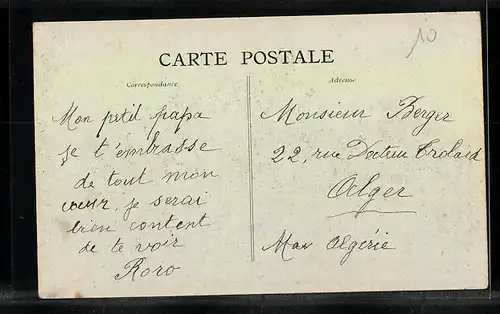 10
CARTE POSTALE
Correspondance
Adresse
Mon petit papa
je t'embrasse
de tout mon
coeur, je serai
bien content
de te voir
Roro
Monsieur Berger
22, rue Docteur Trolard
Alger
Algérie